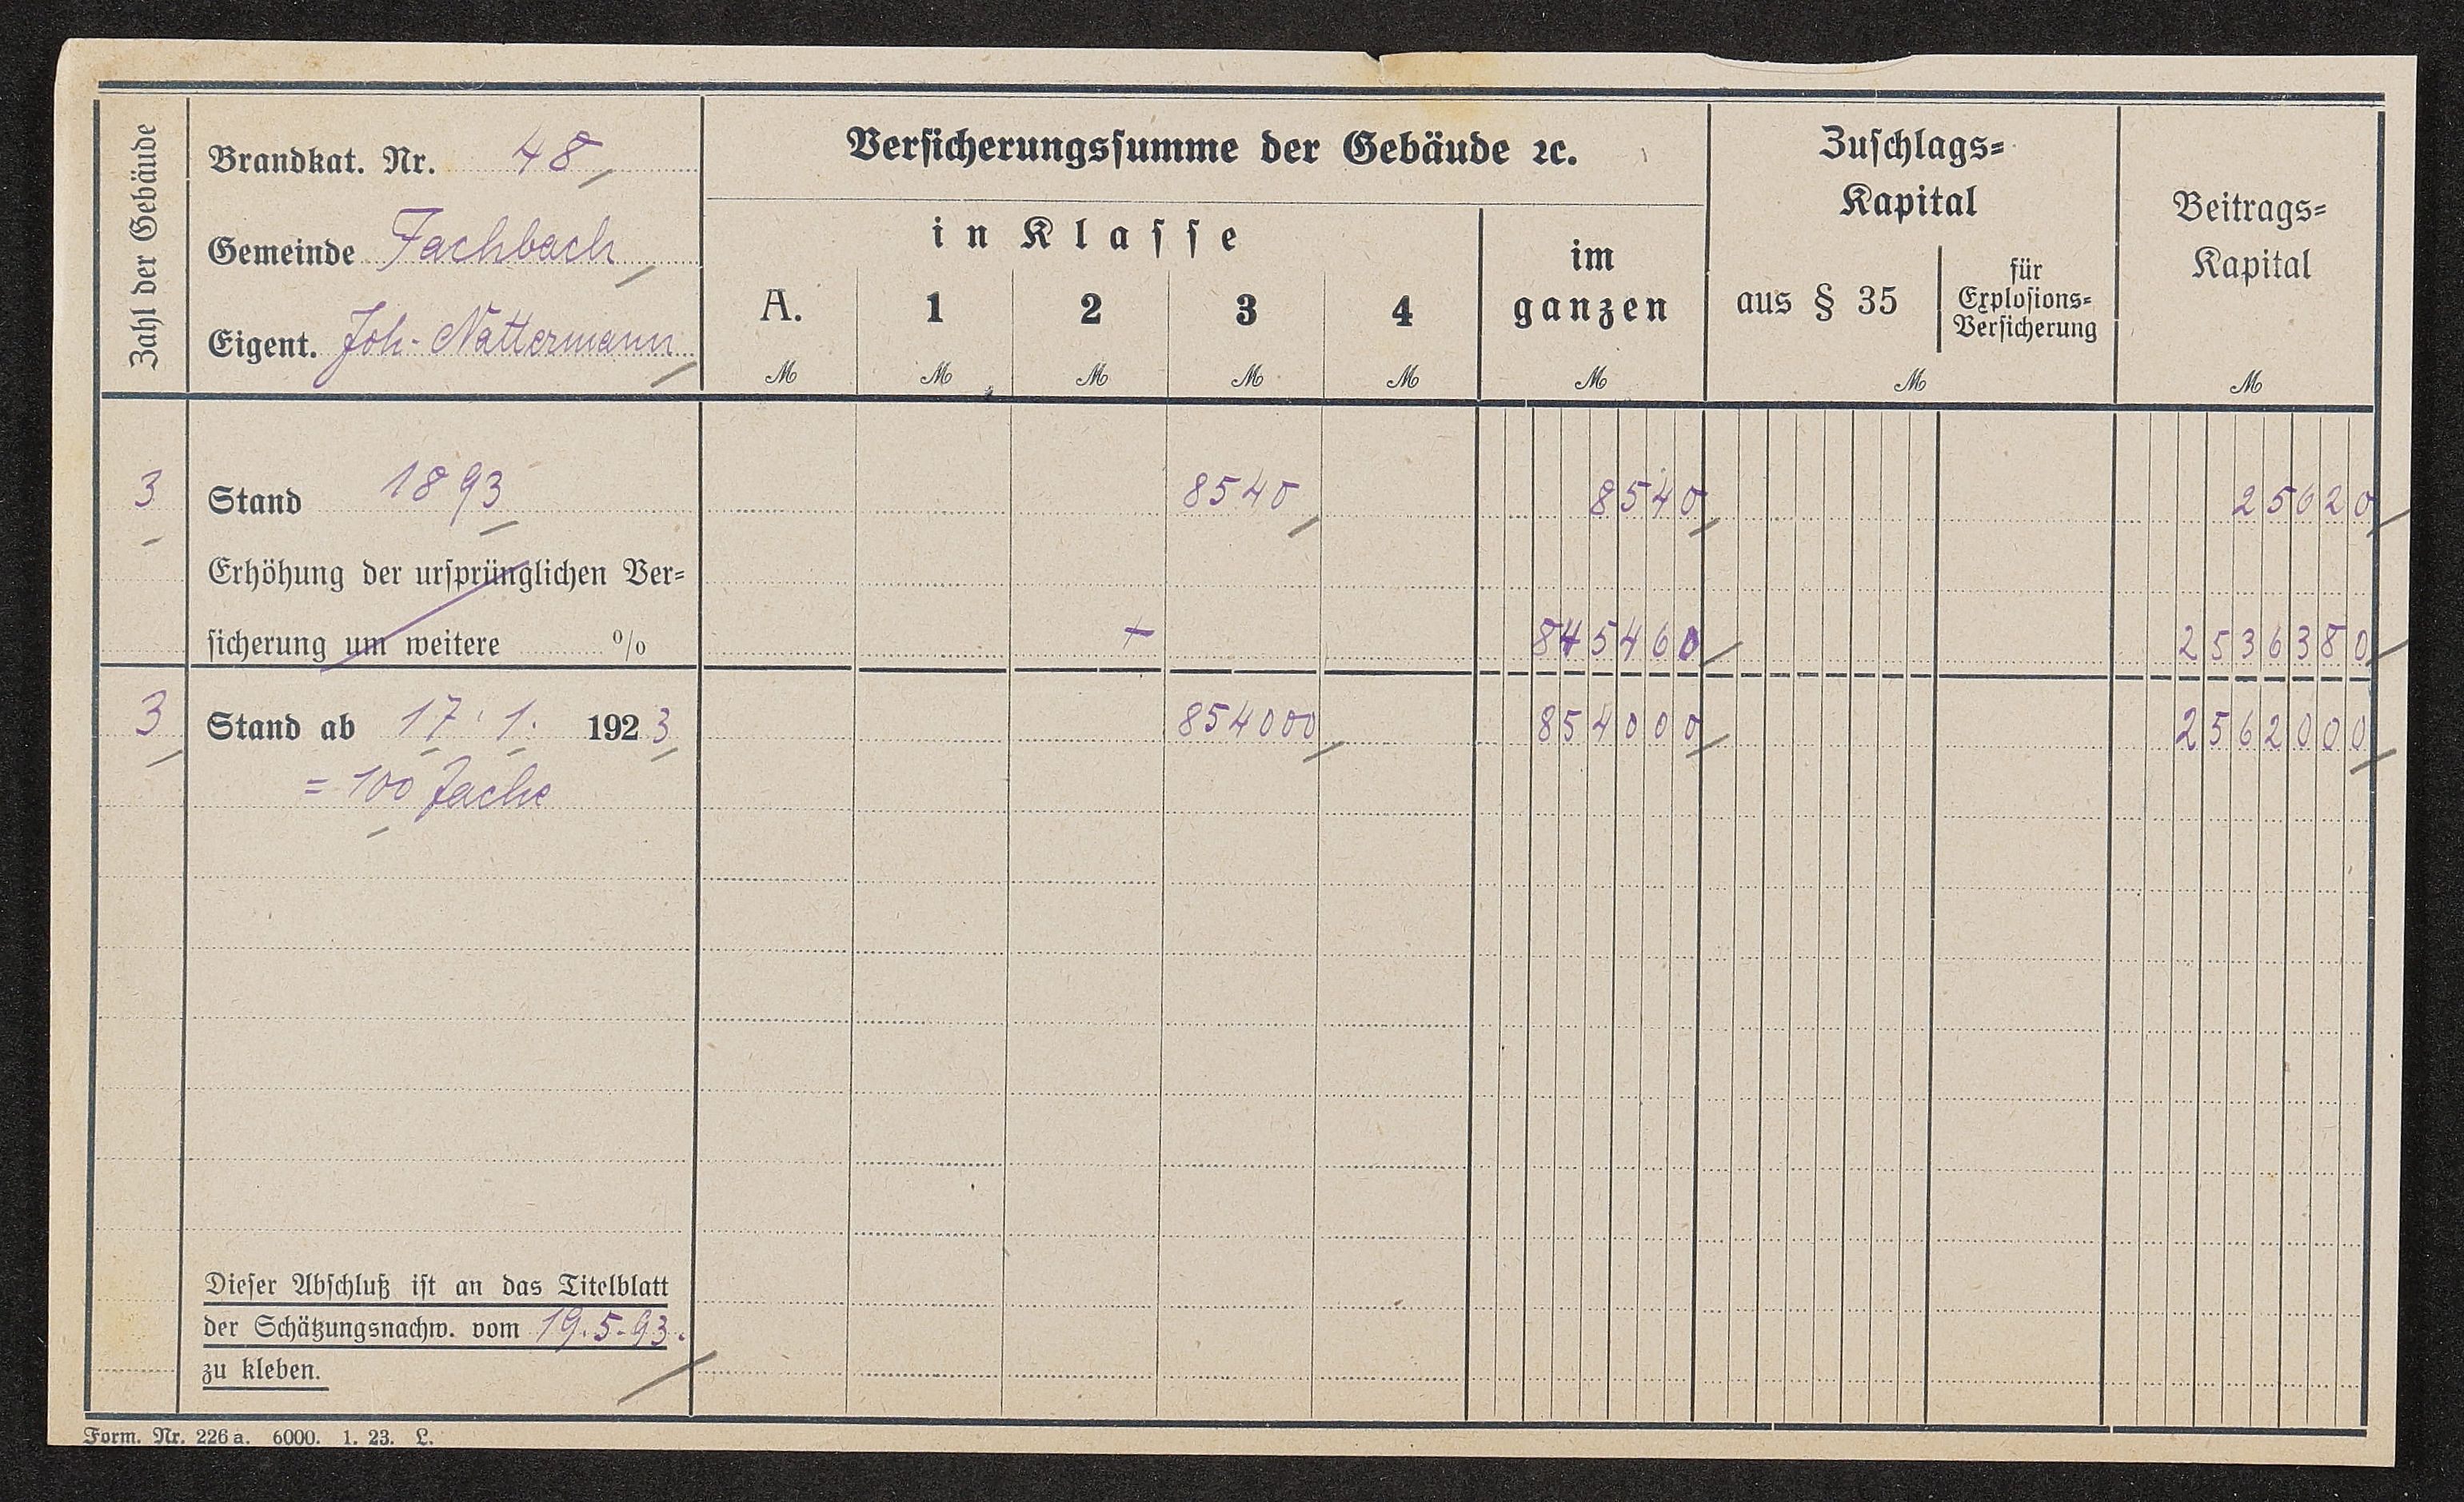 Zahl der Gebäude
Brandkat. Nr. 48
Gemeinde Fachbach
Eigent. Joh. Nattermann
Versicherungssumme der Gebäude ꝛc.
in Klasse
A. 1 2 3 4
M M M M M
im
ganzen
M
Zuschlags-
Kapital
aus § 35
für
Explosions-
Versicherung
M
Beitrags-
Kapital
M
3 Stand 1893 8540 8540 25620
Erhöhung der ursprünglichen Ver-
sicherung um weitere % + 845460 2536380
3 Stand ab 17. 1. 1923 854000 854000 2562000
= 100 fache
Dieser Abschluß ist an das Titelblatt
der Schätzungsnachw. vom 19.5.93.
zu kleben.
Form. Nr. 226 a. 6000. 1. 23. L.